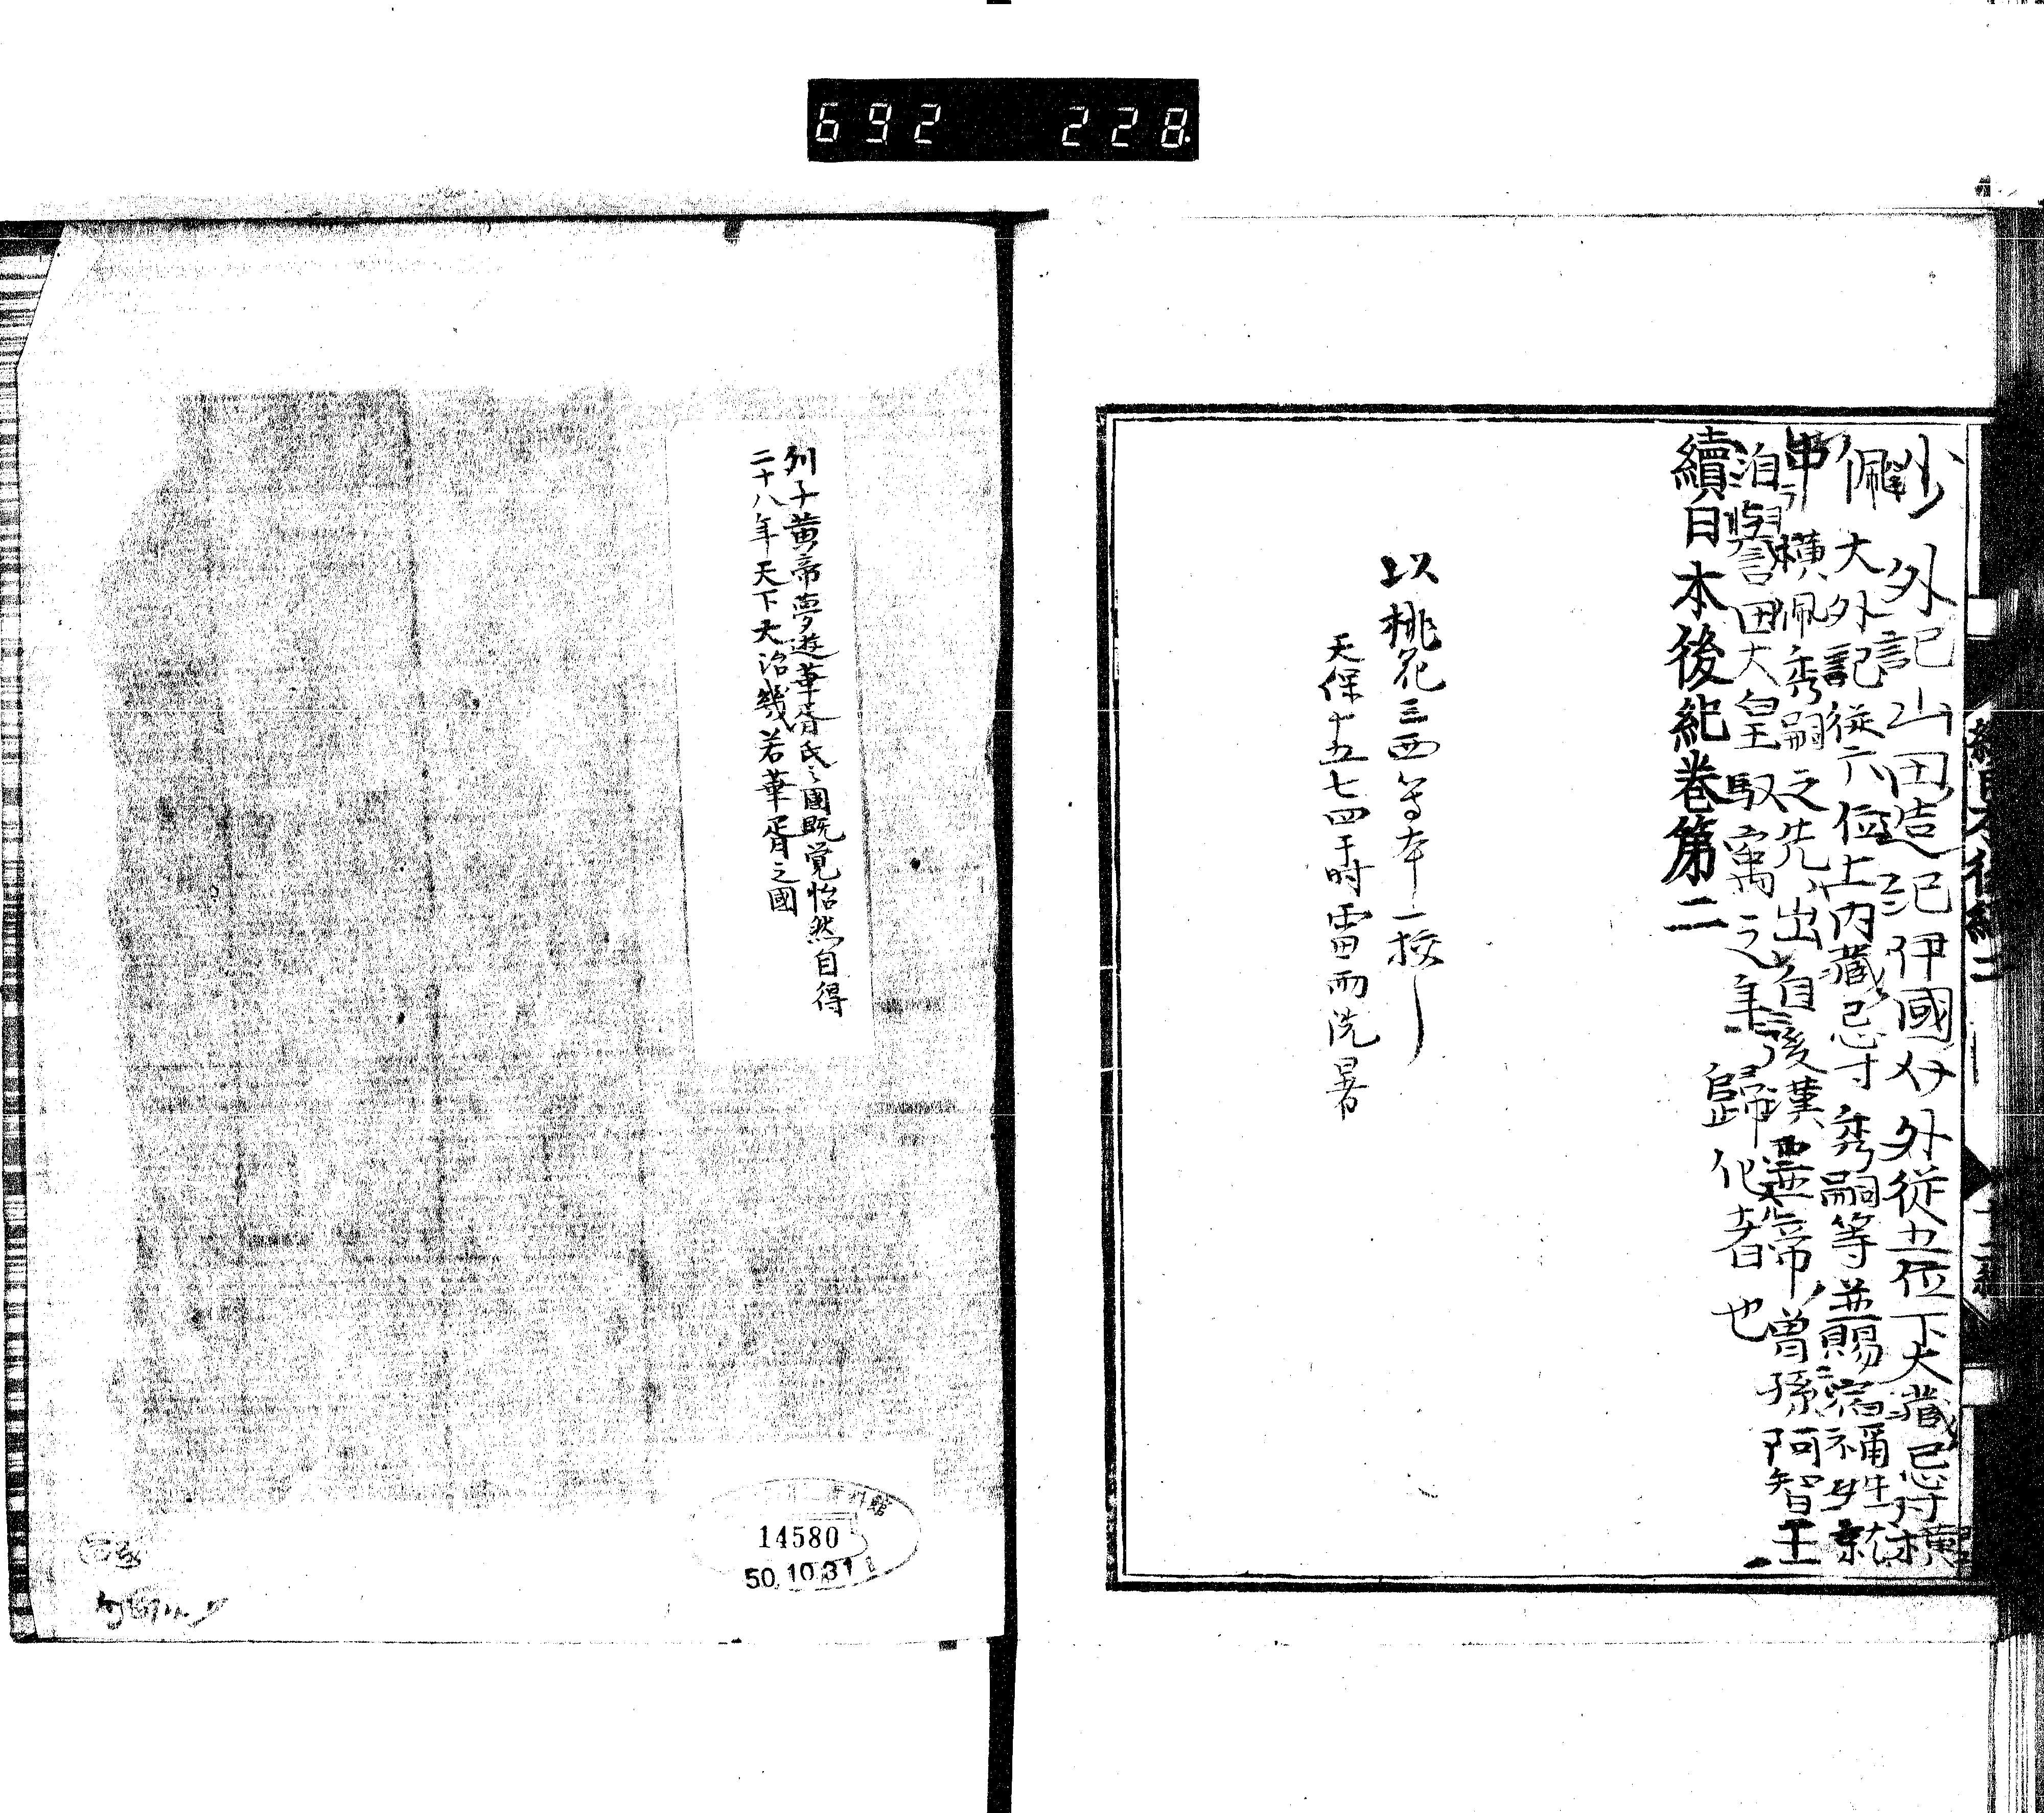 692 228
少外記山田造祀伊國人外從五位下大藏忌寸横
佩大外記從六位上内藏忌寸秀嗣等並賜宿禰姓
横佩秀嗣之先出自後漢靈帝曾孫阿智王
泊譽田天皇馭寓之年歸化者也
續日本後紀卷第二
以桃花三西等本一挍
天保十五七四于時雷雨洗暑
列子黄帝夢遊華胥氏之國既覚怡然自得
二十八年天下大治幾若華胥之國
14580
50.10.31